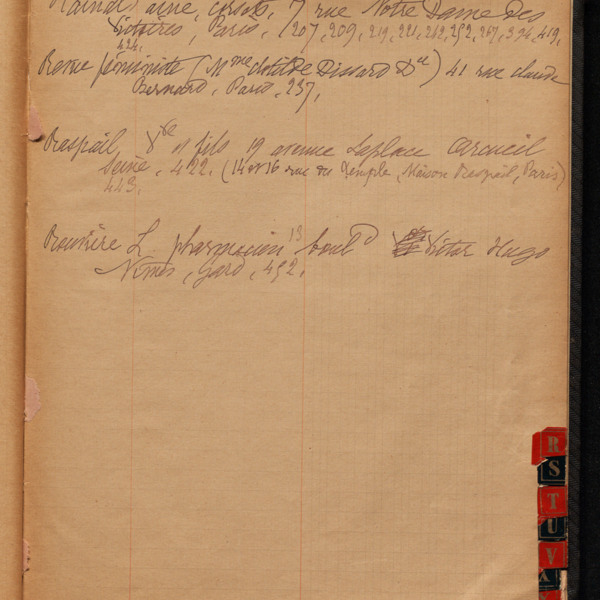 ainé, 7 rue Notre Dame des
Victoires, Paris, 207, 209, 219, 221, 262, 252, 267, 394, 419,
424.
Revue féministe (Mme Clotilde Dissard Dce) 41 rue Claude
Bernard, Paris, 237,
Raspail, Vve et fils 19 avenue Laplace Arcueil
Seine, 422. (14 et 16 rue du Temple, Maison Raspail, Paris)
443.
L. pharmacien 13 bould Victor Hugo
Nîmes, Gard, 452.
R
S
T
U
V
X